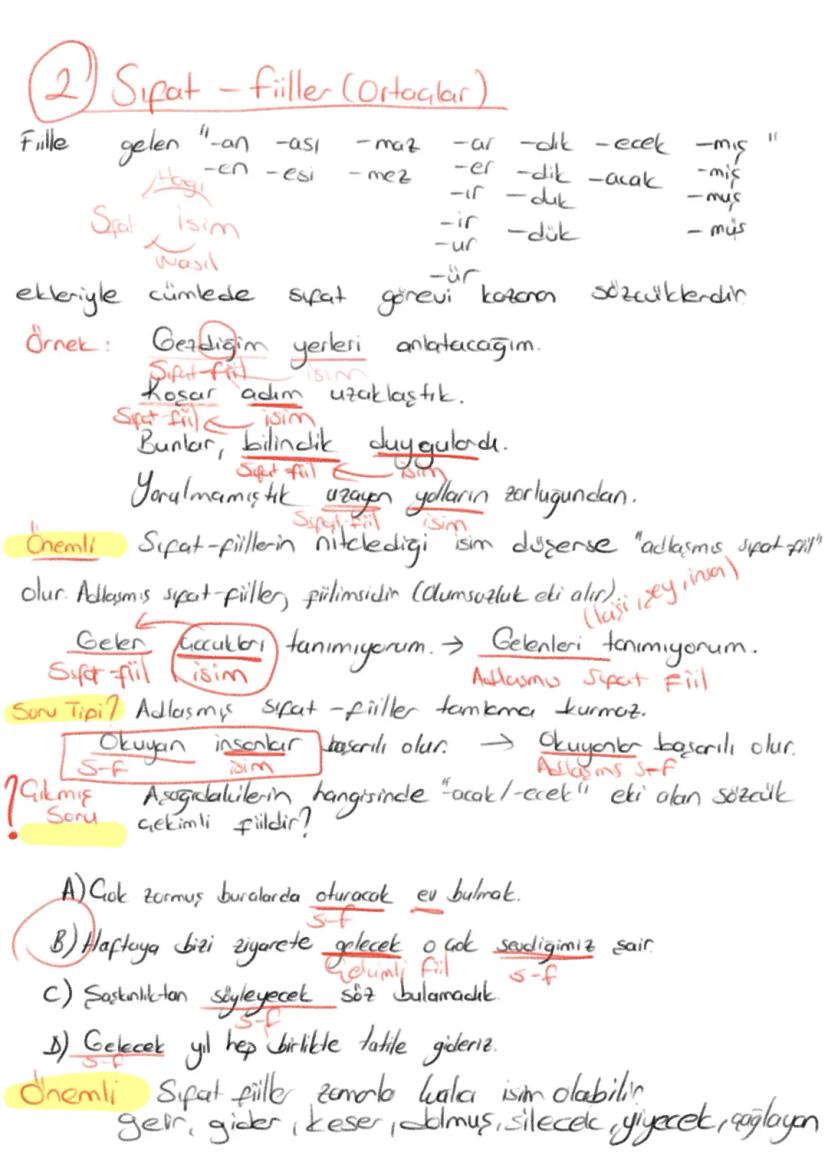 2 Sıfat - fiiller (Ortaçlar)
Fiille gelen "-an -ası -maz -ar -dık -ecek -mış "
-en -esi -mez -er -dik -acak -miş
-ır -duk -muş
Hangi
Sıfat isim
-ir -dük -müş
-ur
Nasıl
-ür
ekleriyle cümlede sıfat görevi kazanan sözcüklerdir.
Örnek: Gezdiğim yerleri anlatacağım.
Sıfat-fiil isim
Koşar adım uzaklaştık.
Sıfat fiil isim
Bunlar, bilindik duygulardı.
Sıfat fiil isim
Yorulmamıştık uzayan yolların zorluğundan.
Sıfat fiil isim
Önemli Sıfat-fiillerin nitelediği isim düşerse "adlaşmış sıfat-fiil"
olur. Adlaşmış sıfat-fiiller, fiilimsidir (Olumsuzluk eki alır).
(kişi, şey, insan)
Gelen çocukları tanımıyorum. → Gelenleri tanımıyorum.
Sıfat-fiil isim Adlaşmış Sıfat Fiil
Soru Tipi? Adlaşmış sıfat-fiiller tamlama kurmaz.
Okuyan insanlar başarılı olur. → Okuyanlar başarılı olur.
S-f isim Adlaşmış S-f
Çıkmış Soru Aşağıdakilerin hangisinde "-acak/-ecek" eki alan sözcük
!
çekimli fiildir?
A) Çok zormuş buralarda oturacak ev bulmak.
s-f
B) Haftaya bizi ziyarete gelecek o çok sevdiğimiz şair.
Çekimli fiil s-f
C) Şaşkınlıktan söyleyecek söz bulamadık.
s-f
D) Gelecek yıl hep birlikte tatile gideriz.
s-f
Önemli Sıfat fiiller zamanla kalıcı isim olabilir.
gelir, gider, keser, dolmuş, silecek, yiyecek, çağlayan